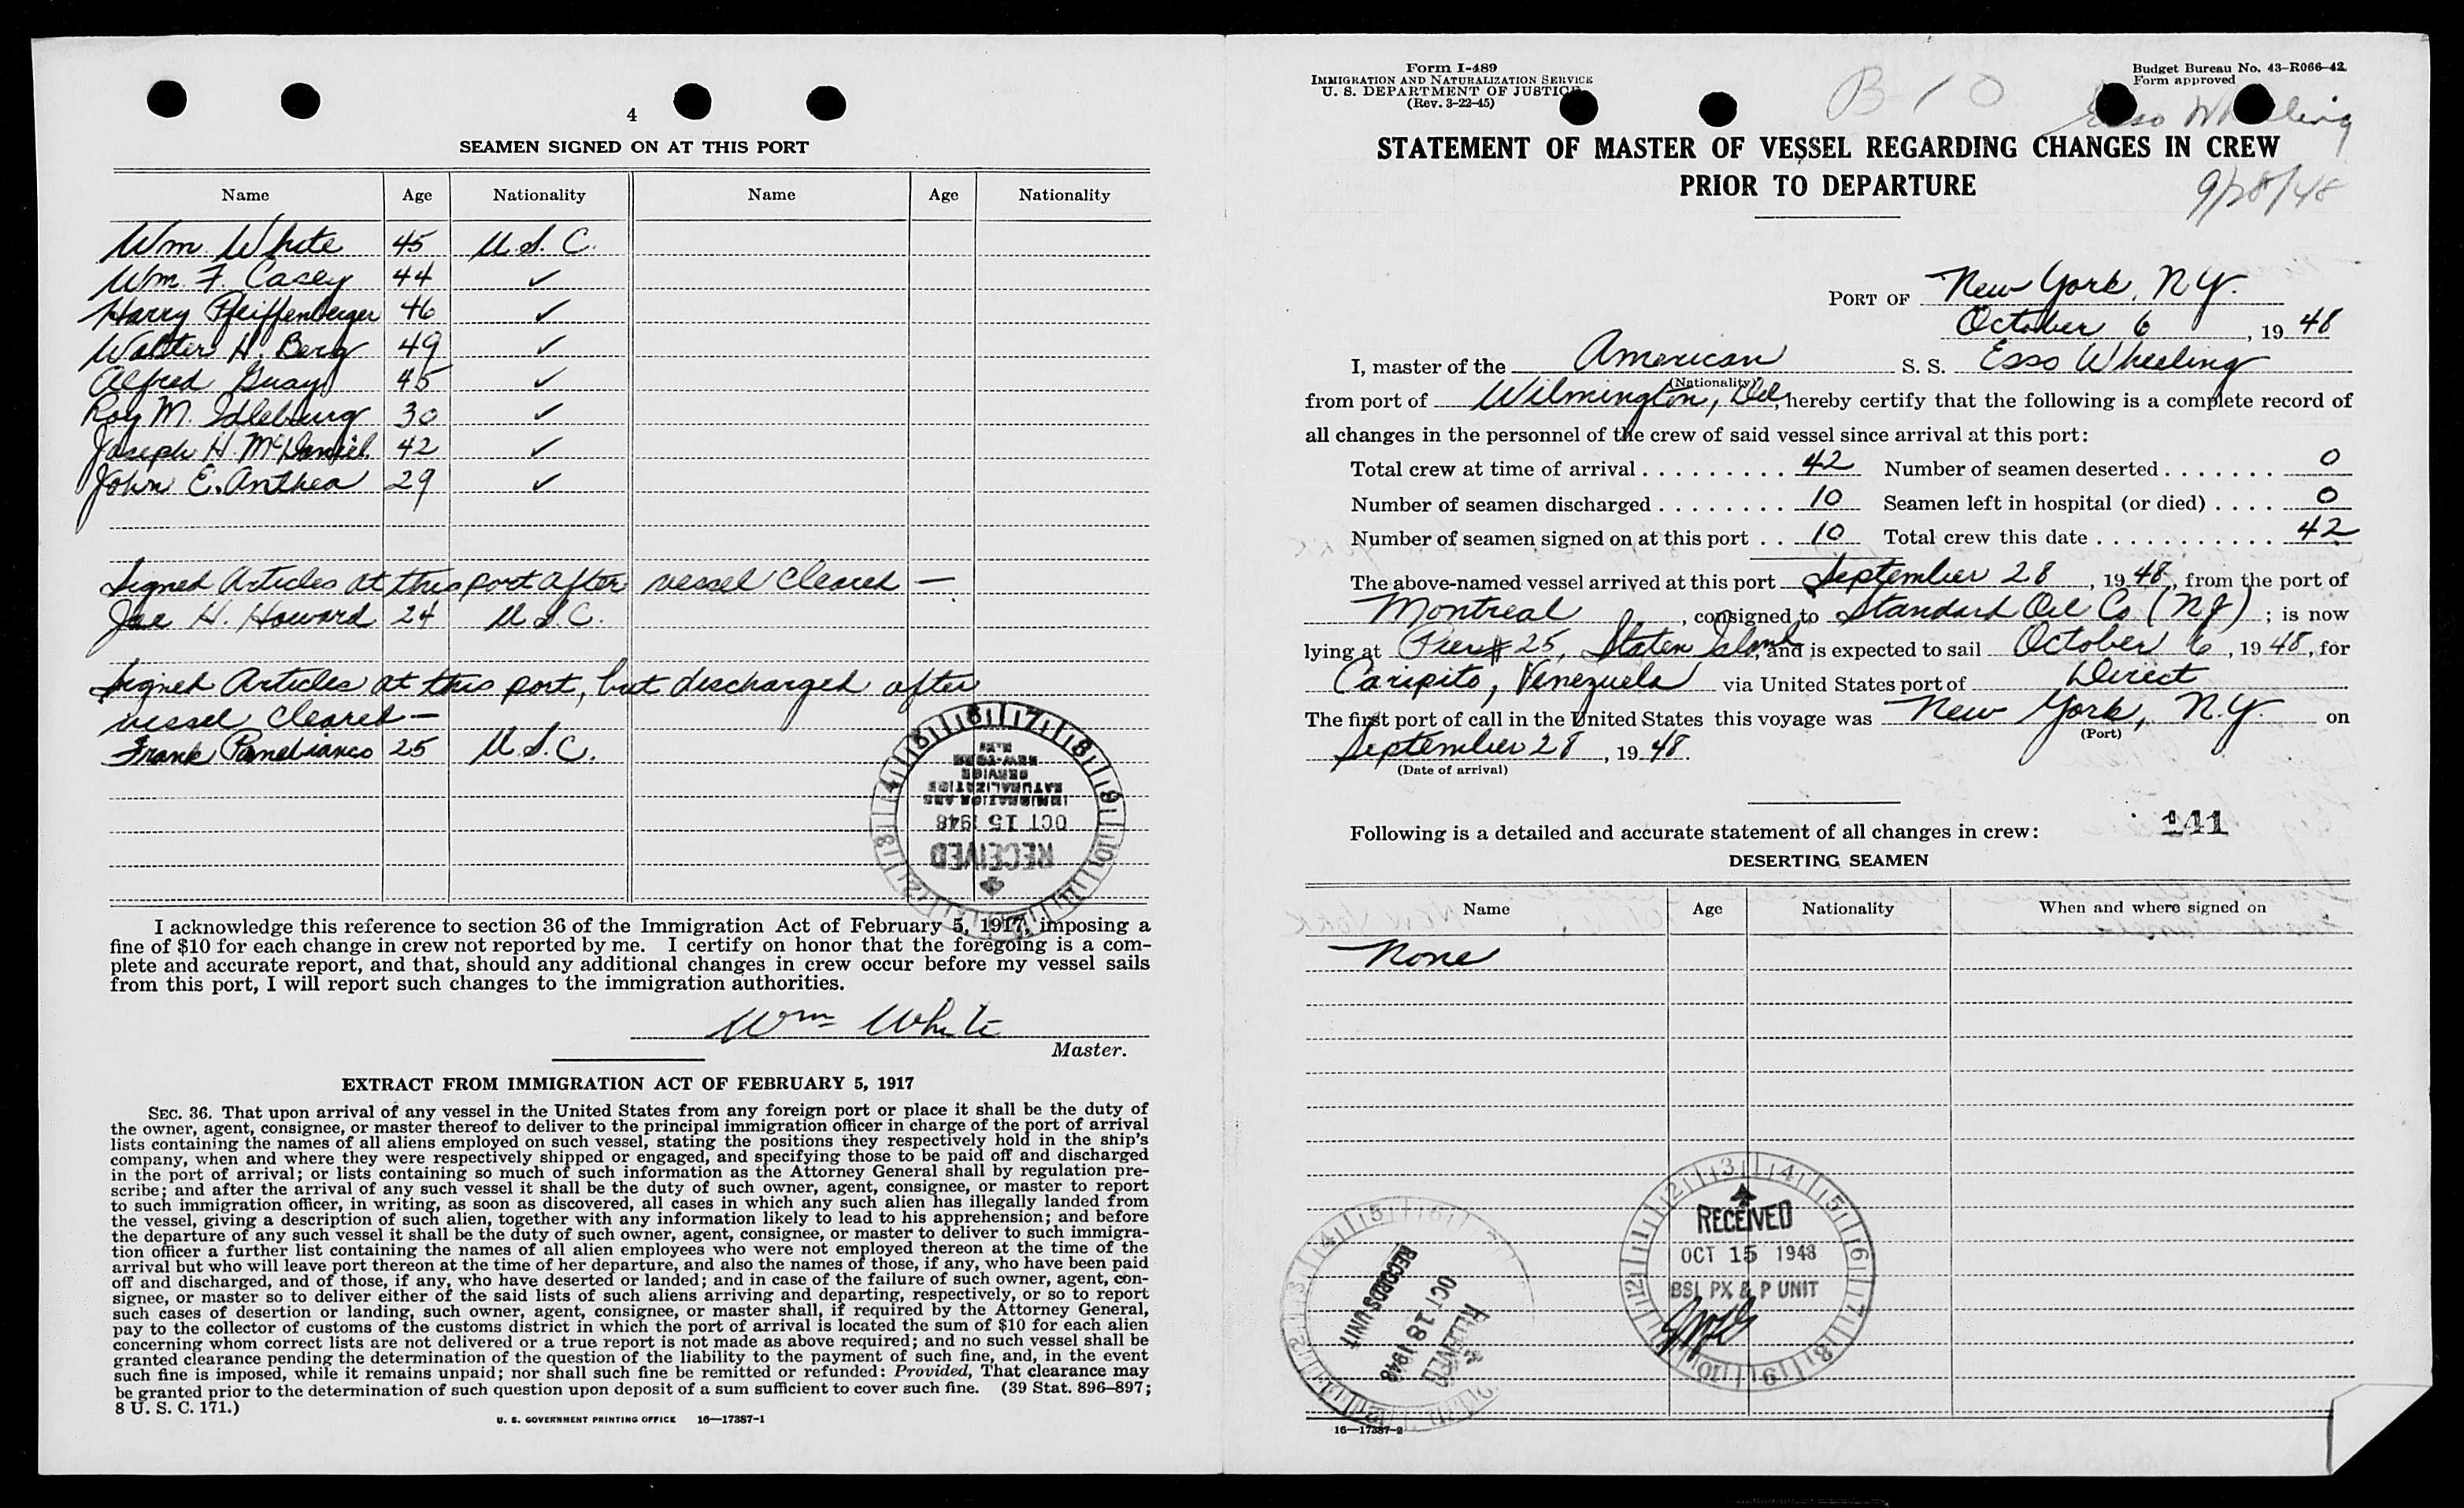 4
SEAMEN SIGNED ON AT THIS PORT
Name Age Nationality Name Age Nationality
Wm. White 45 U.S.C.
Wm. F. Casey 44 ✓
Harry Pfeiffenberger 46 ✓
Walter H. Berg 49 ✓
Alfred Guay 45 ✓
Roy M. Idleburg 30 ✓
Joseph H. McDaniel 42 ✓
John E. Anthea 29 ✓
Signed Articles at this port after vessel cleared —
Joe H. Howard 24 U.S.C.
Signed Articles at this port, but discharged after
vessel cleared —
Frank Panebianco 25 U.S.C.
RECEIVED
OCT 15 1948
IMMIGRATION AND
NATURALIZATION
SERVICE
NEW YORK
N.Y.
I acknowledge this reference to section 36 of the Immigration Act of February 5, 1917, imposing a
fine of $10 for each change in crew not reported by me. I certify on honor that the foregoing is a com-
plete and accurate report, and that, should any additional changes in crew occur before my vessel sails
from this port, I will report such changes to the immigration authorities.
Wm White
Master.
EXTRACT FROM IMMIGRATION ACT OF FEBRUARY 5, 1917
SEC. 36. That upon arrival of any vessel in the United States from any foreign port or place it shall be the duty of
the owner, agent, consignee, or master thereof to deliver to the principal immigration officer in charge of the port of arrival
lists containing the names of all aliens employed on such vessel, stating the positions they respectively hold in the ship's
company, when and where they were respectively shipped or engaged, and specifying those to be paid off and discharged
in the port of arrival; or lists containing so much of such information as the Attorney General shall by regulation pre-
scribe; and after the arrival of any such vessel it shall be the duty of such owner, agent, consignee, or master to report
to such immigration officer, in writing, as soon as discovered, all cases in which any such alien has illegally landed from
the vessel, giving a description of such alien, together with any information likely to lead to his apprehension; and before
the departure of any such vessel it shall be the duty of such owner, agent, consignee, or master to deliver to such immigra-
tion officer a further list containing the names of all alien employees who were not employed thereon at the time of the
arrival but who will leave port thereon at the time of her departure, and also the names of those, if any, who have been paid
off and discharged, and of those, if any, who have deserted or landed; and in case of the failure of such owner, agent, con-
signee, or master so to deliver either of the said lists of such aliens arriving and departing, respectively, or so to report
such cases of desertion or landing, such owner, agent, consignee, or master shall, if required by the Attorney General,
pay to the collector of customs of the customs district in which the port of arrival is located the sum of $10 for each alien
concerning whom correct lists are not delivered or a true report is not made as above required; and no such vessel shall be
granted clearance pending the determination of the question of the liability to the payment of such fine, and, in the event
such fine is imposed, while it remains unpaid; nor shall such fine be remitted or refunded: Provided, That clearance may
be granted prior to the determination of such question upon deposit of a sum sufficient to cover such fine. (39 Stat. 896–897;
8 U. S. C. 171.)
U. S. GOVERNMENT PRINTING OFFICE 16—17387-1
Form I-489
IMMIGRATION AND NATURALIZATION SERVICE
U. S. DEPARTMENT OF JUSTICE
(Rev. 3-22-45)
B-10
Budget Bureau No. 43-R066-42
Form approved
Esso Wheeling
STATEMENT OF MASTER OF VESSEL REGARDING CHANGES IN CREW
PRIOR TO DEPARTURE
9/28/48
PORT OF New York, N.Y.
October 6, 1948
I, master of the American S. S. Esso Wheeling
(Nationality)
from port of Wilmington, Del, hereby certify that the following is a complete record of
all changes in the personnel of the crew of said vessel since arrival at this port:
Total crew at time of arrival . . . . . . . . . 42 Number of seamen deserted . . . . . . . 0
Number of seamen discharged . . . . . . . . 10 Seamen left in hospital (or died) . . . . 0
Number of seamen signed on at this port . . 10 Total crew this date . . . . . . . . . . . 42
The above-named vessel arrived at this port September 28, 1948, from the port of
Montreal, consigned to Standard Oil Co. (NJ); is now
lying at Pier # 25, Staten Island, and is expected to sail October 6, 1948, for
Caripito, Venezuela via United States port of Direct
The first port of call in the United States this voyage was New York, N.Y. on
(Port)
September 28, 1948.
(Date of arrival)
Following is a detailed and accurate statement of all changes in crew: 141
DESERTING SEAMEN
Name Age Nationality When and where signed on
None
RECEIVED
OCT 15 1948
BSI PX & P UNIT
RECEIVED
OCT 18 1948
RECORDS UNIT
16—17387-2